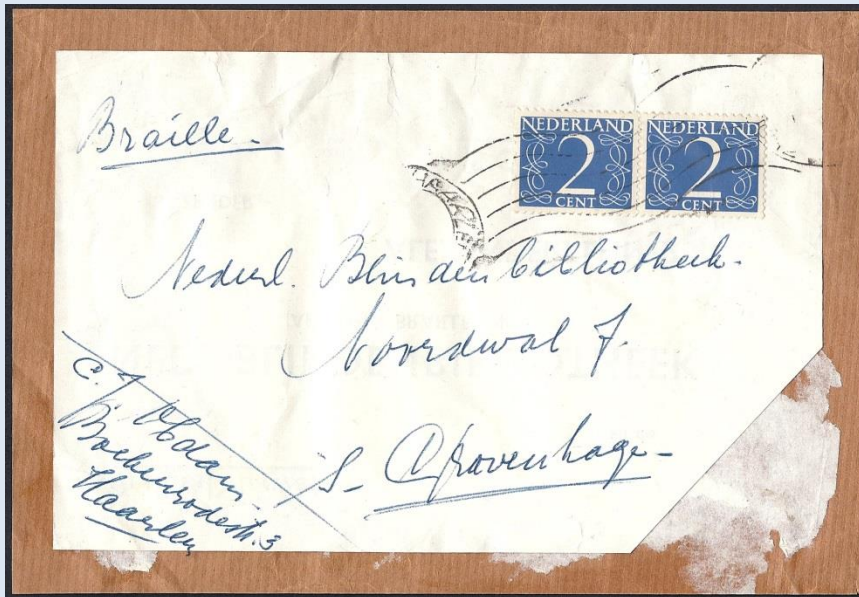 Braille.
NEDERLAND
2
CENT
NEDERLAND
2
CENT
HAARLEM
Nederl. Blindenbibliotheek.
Noordwal 7.
s. Gravenhage
C. J. Obdam
Boekenrodestr. 3
Haarlem